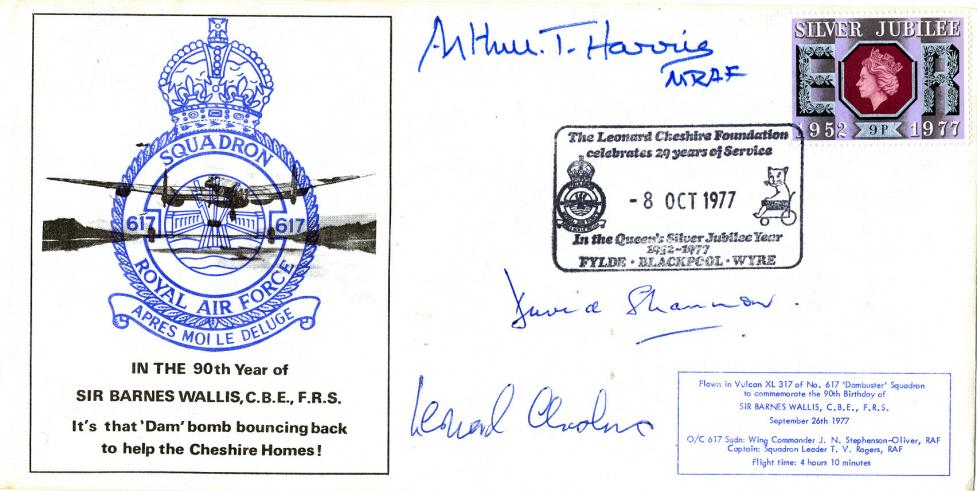 SQUADRON
617 617
ROYAL AIR FORCE
APRES MOI LE DELUGE
IN THE 90th Year of
SIR BARNES WALLIS, C.B.E., F.R.S.
It's that 'Dam' bomb bouncing back
to help the Cheshire Homes!
Arthur. T. Harris
MRAF
SILVER JUBILEE
E R
1952 9P 1977
The Leonard Cheshire Foundation
celebrates 29 years of Service
- 8 OCT 1977
In the Queen's Silver Jubilee Year
1952-1977
FYLDE · BLACKPOOL · WYRE
David Shannon.
Leonard Cheshire
Flown in Vulcan XL 317 of No. 617 'Dambuster' Squadron
to commemorate the 90th Birthday of
SIR BARNES WALLIS, C.B.E., F.R.S.
September 26th 1977
O/C 617 Sqdn: Wing Commander J. N. Stephenson-Oliver, RAF
Captain: Squadron Leader T. V. Rogers, RAF
Flight time: 4 hours 10 minutes